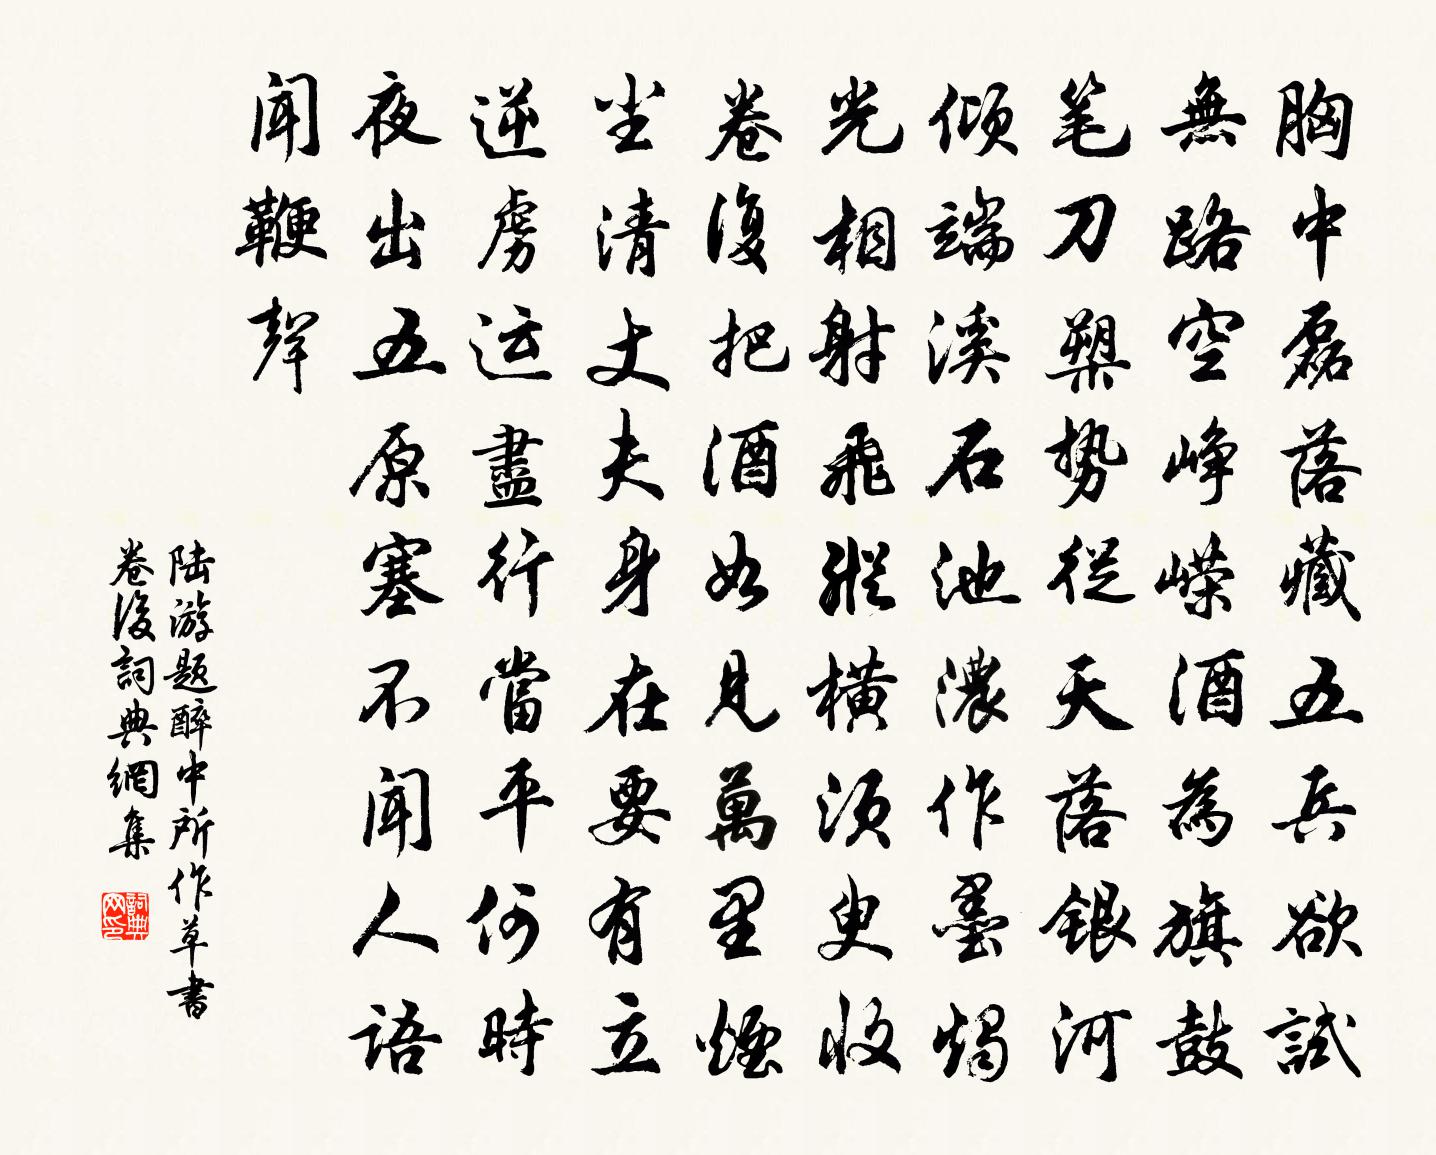 胸中磊落藏五兵欲試
無路空崢嶸酒為旗鼓
笔刀槊勢從天落銀河
傾端溪石池濃作墨燭
光相射飛縱橫須臾收
卷復把酒如見萬里煙
尘清丈夫身在要有立
逆虜运盡行當平何時
夜出五原塞不聞人語
聞鞭聲
陆游題醉中所作草書
卷後詞典網集
詞典网印